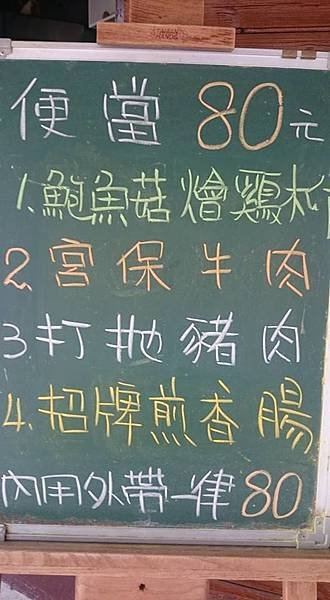 便當 80元
1.鮑魚菇燴鷄朳
2.宮保牛肉
3打拋豬肉
4.招牌煎香腸
內用外帶一律80